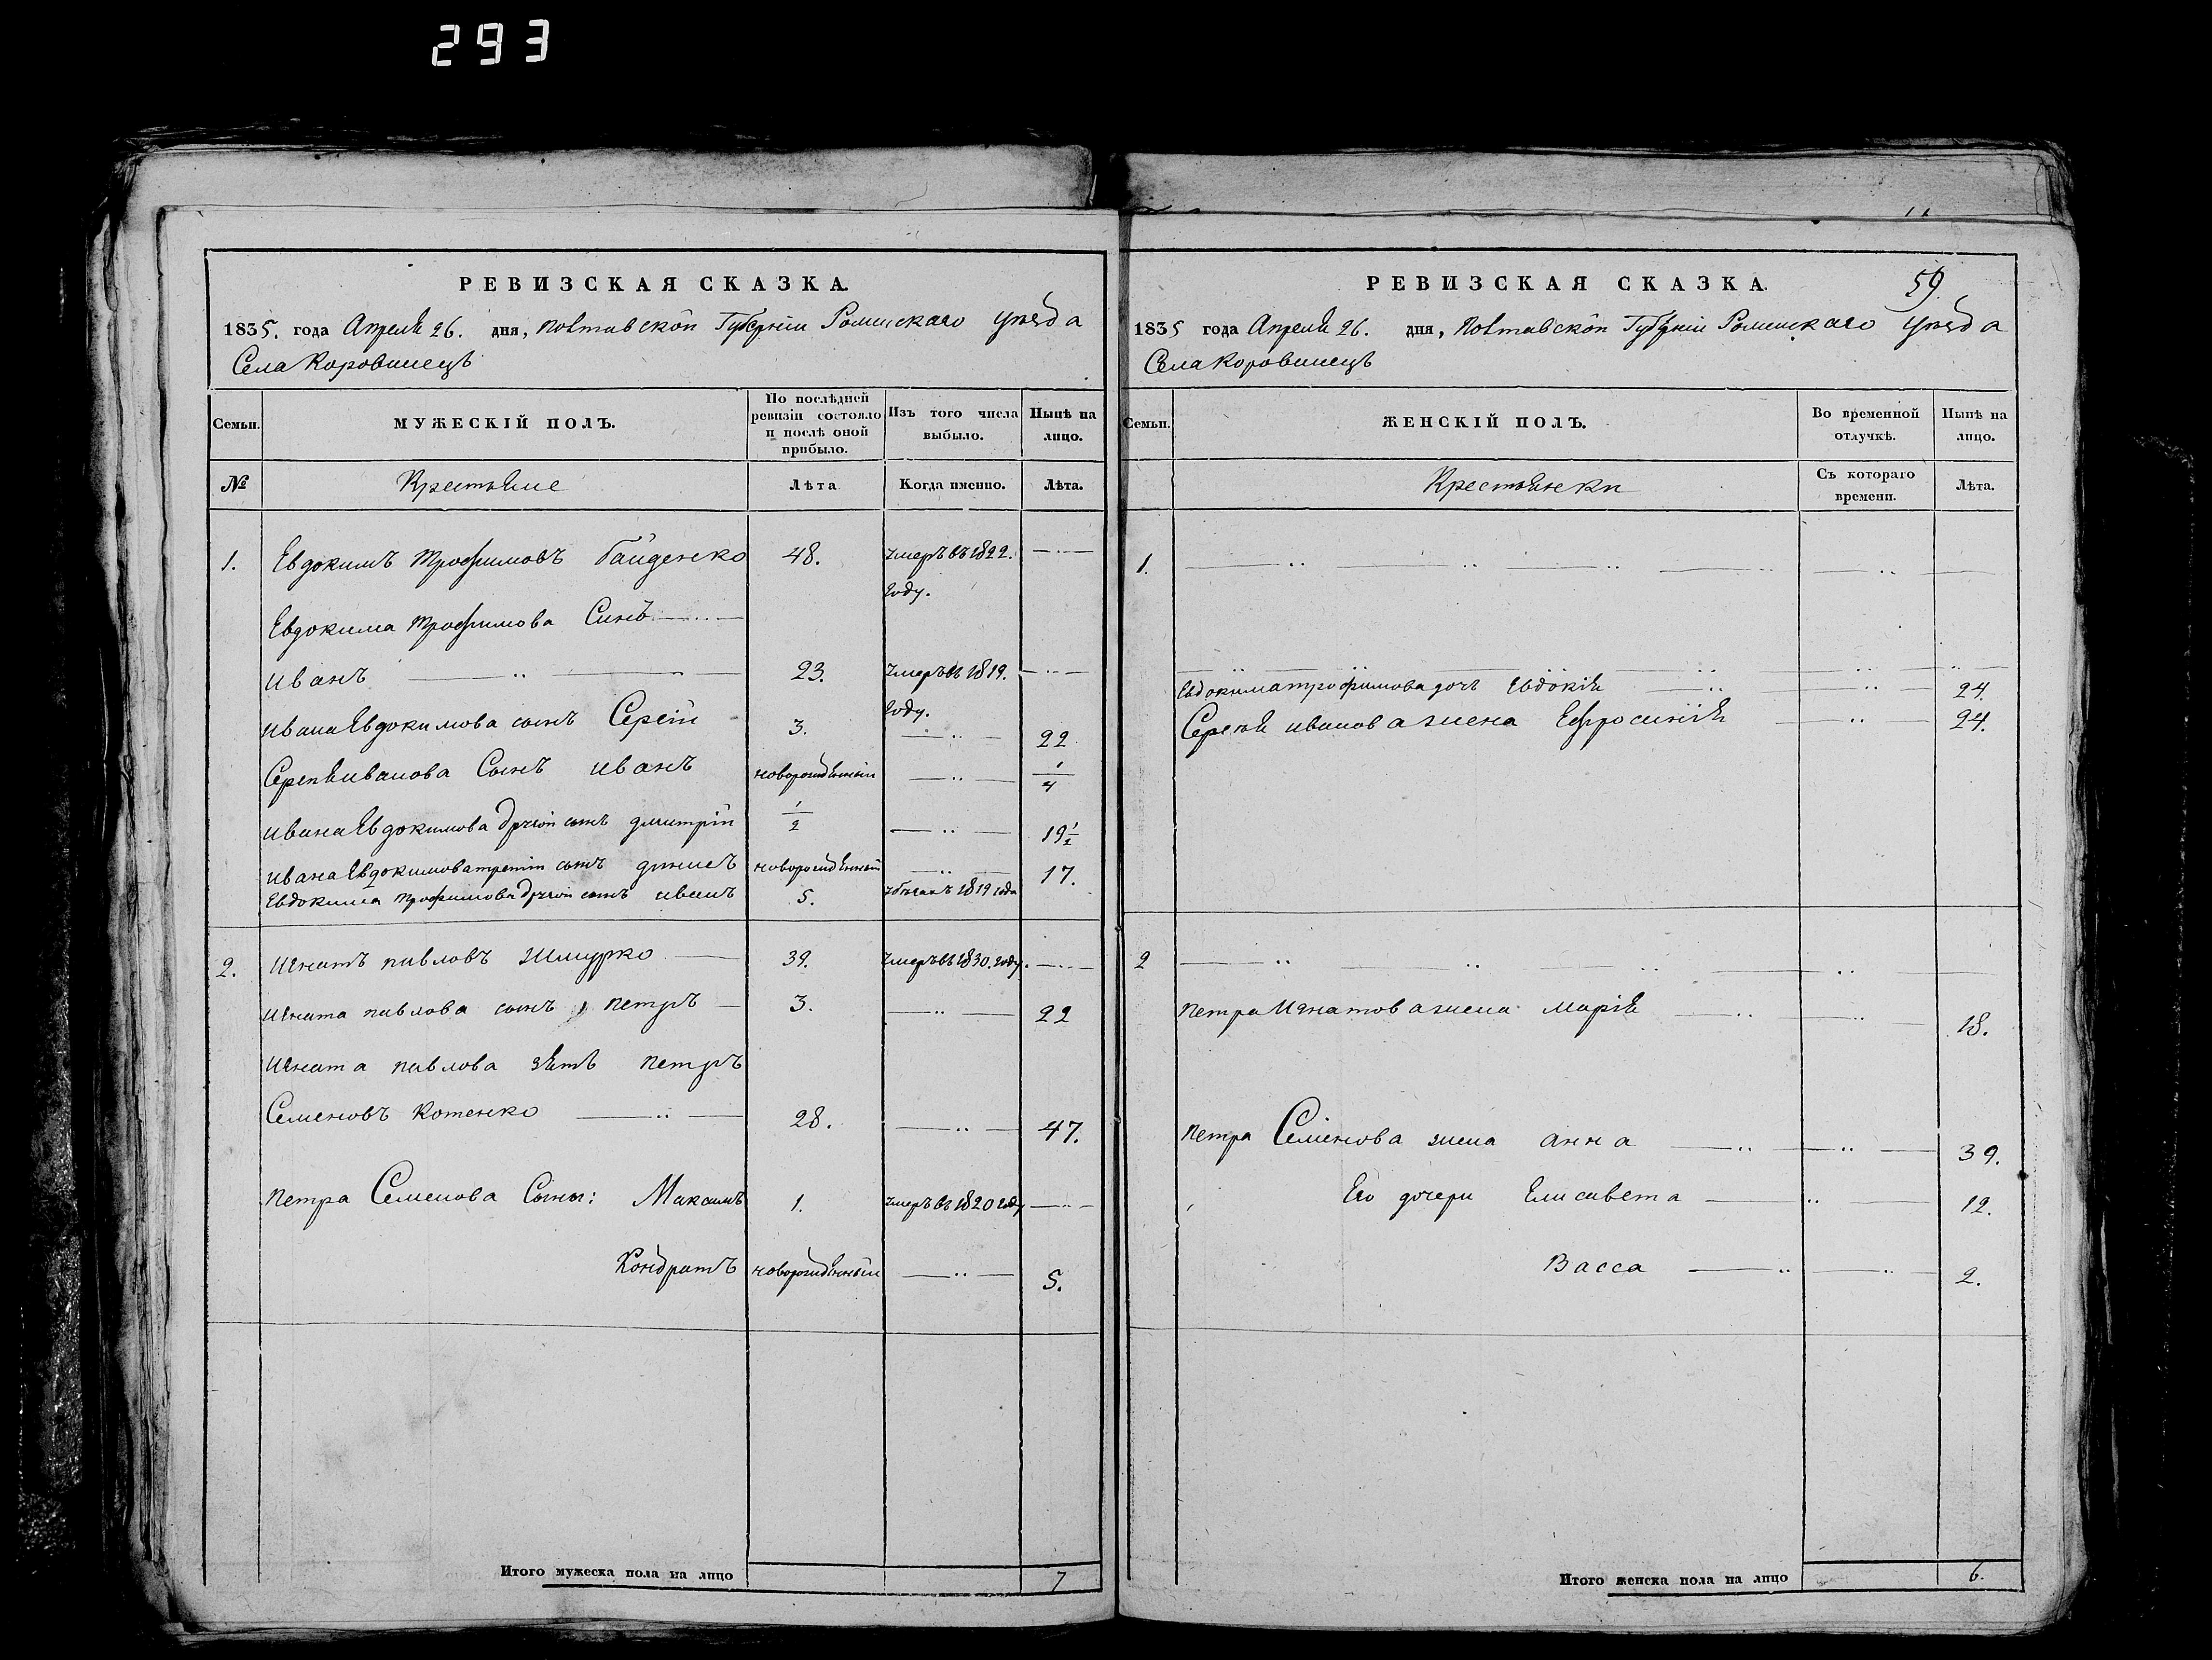 293
РЕВИЗСКАЯ СКАЗКА.
1835. года Апреля 26. дня, Полтавской Губернии Роменскаго уезда
Села Коровинецъ
Семьи.
МУЖЕСКІЙ ПОЛЪ.
По послѣдней ревизіи состояло и послѣ оной прибыло.
Изъ того числа выбыло.
Нынѣ на лицо.
№
Крестьяне
Лѣта
Когда именно.
Лѣта.
1. Евдокимъ Трофимовъ Гайденко 48. Умеръ въ 1822. —··—
году.
Евдокима Трофимова Синъ —··—
Иванъ —··— 23. Умеръ въ 1819. —··—
году.
Ивана Евдокимова сынъ Сергій 3. —··— 22
Сергея Иванова Сынъ Иванъ новорожденный —··— 1/4
Ивана Евдокимова другой сынъ Дмитрій 1/2 —··— 19 1/2
Ивана Евдокимова третій сынъ новорожденный —··— 17.
Евдокима Трофимова другой сынъ Иванъ 5. 1819 года
2. Игнатъ Павловъ Шмурко — 39. Умеръ въ 1830. году. —··—
Игната Павлова сынъ Петръ — 3. —··— 22
Игната Павлова зять Петръ
Семеновъ Котенко —··— 28. —··— 47.
Петра Семенова Сыны: Максимъ 1. Умеръ въ 1820 году —··—
Кондратъ новорожденный —··— 5.
Итого мужеска пола на лицо 7
59.
РЕВИЗСКАЯ СКАЗКА.
1835 года Апреля 26. дня, Полтавской Губернии Роменскаго уезда
Села Коровинецъ
Семьи.
ЖЕНСКІЙ ПОЛЪ.
Во временной отлучкѣ.
Нынѣ на лицо.
Крестьянки
Съ котораго времени.
Лѣта.
1. —··— —··— —
—··— —··— —··—
Евдокима Трофимова дочь Евдокія —··— —··— 24.
Сергея Иванова жена Ефросинія —··— 24.
2 —··— —··— —
Петра Игнатова жена Марія —··— —··— 18.
Петра Семенова жена Анна —··— —··— 39.
Его дочери Елисавета —··— 12.
Васса —··— —··— 2.
Итого женска пола на лицо 6.